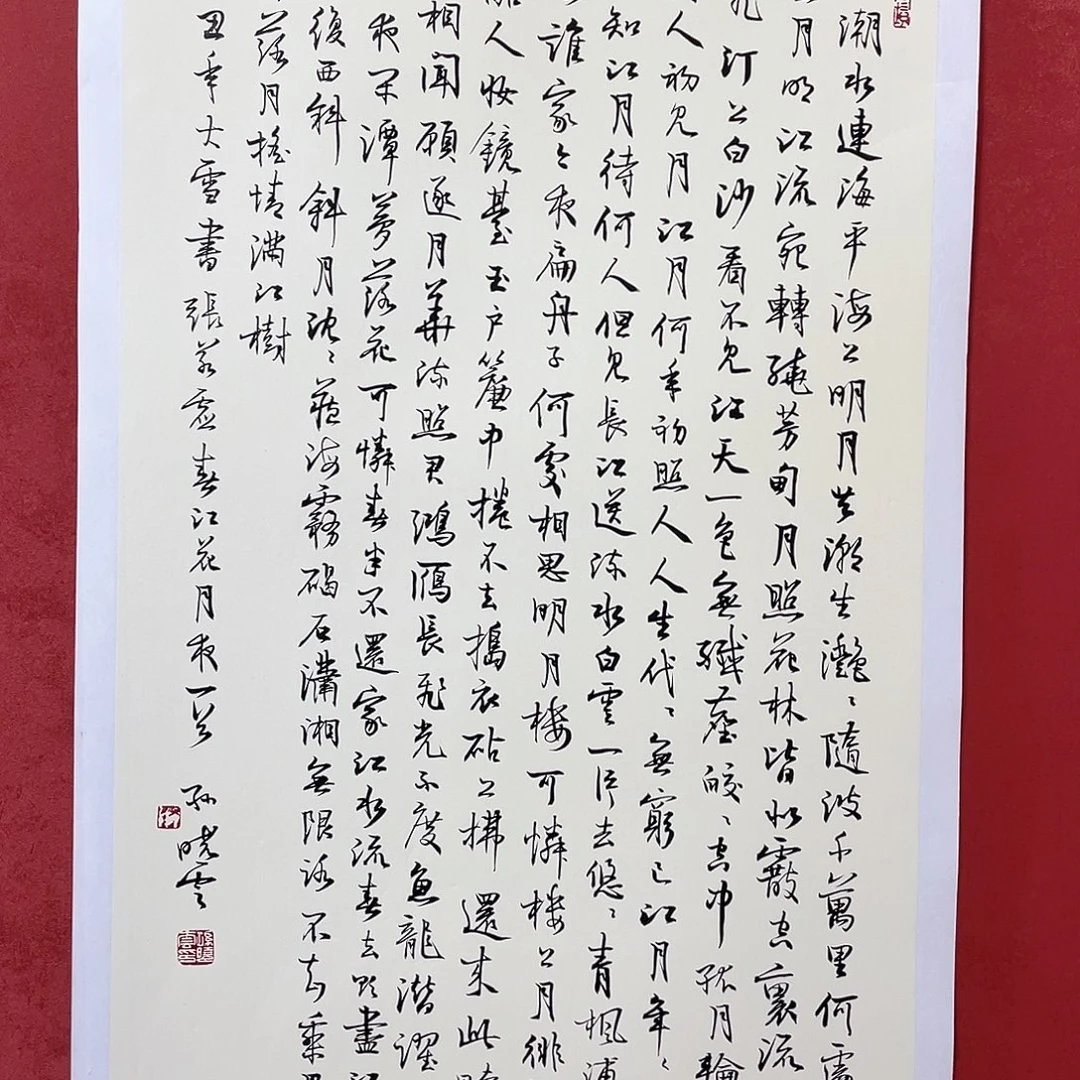 潮水連海平海上明月共潮生灩〻隨波千萬里何處
月明江流宛轉繞芳甸月照花林皆似霰空裏流
飛汀上白沙看不見江天一色無纖塵皎〻空中孤月輪
人初見月江月何年初照人人生代〻無窮已江月年〻
知江月待何人但見長江送流水白雲一片去悠〻青楓浦
誰家今夜扁舟子何處相思明月楼可憐楼上月徘
人妝鏡臺玉戶簾中捲不去搗衣砧上拂還來此時
相聞願逐月華流照君鴻雁長飛光不度魚龍潛躍
夜閑潭夢落花可憐春半不還家江水流春去欲盡江
復西斜斜月沈〻藏海霧碣石瀟湘無限路不知乘月
落月搖情滿江樹
丑年大雪書張若虛春江花月夜一首 孫曉雲